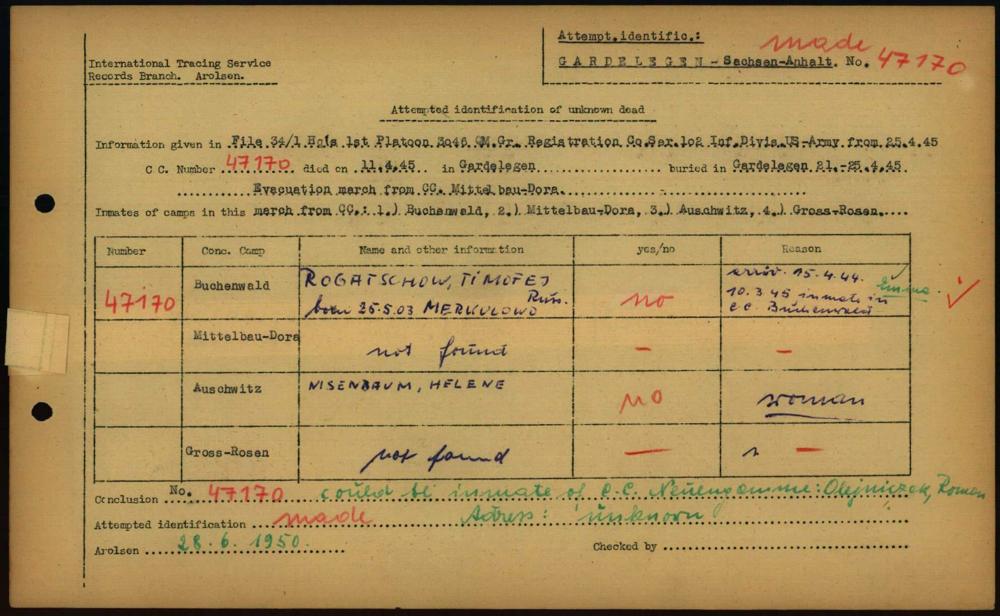 Attempt.identific.: made
International Tracing Service
Records Branch. Arolsen.
GARDELEGEN - Sachsen-Anhalt. No. 47170
Attempted identification of unknown dead
Information given in File 34/1 1st Platoon 3046 QM.Gr. Registration Co.Ser.102 Inf.Divis.US-Army from 25.4.45
C C. Number 47170 died on 11.4.45 in Gardelegen buried in Gardelegen 21.-25.4.45
Evacuation march from CC. Mittelbau-Dora.
Inmates of camps in this march from CC.: 1.) Buchenwald, 2.) Mittelbau-Dora, 3.) Auschwitz, 4.) Gross-Rosen.
Number Conc. Camp Name and other information yes/no Reason
47170 Buchenwald ROGATSCHOW, TIMOFEJ Rus. born 25.5.03 MERKULOWO no arriv. 15.4.44. 10.3.45 inmate in C C. Buchenwald
Mittelbau-Dora not found - -
Auschwitz NISENBAUM, HELENE no woman
Gross-Rosen not found - -
Conclusion No. 47170 could be inmate of C.C. Neuengamme: Olejniczak, Roman
Attempted identification made Adress: unknown
Arolsen 28.6.1950. Checked by